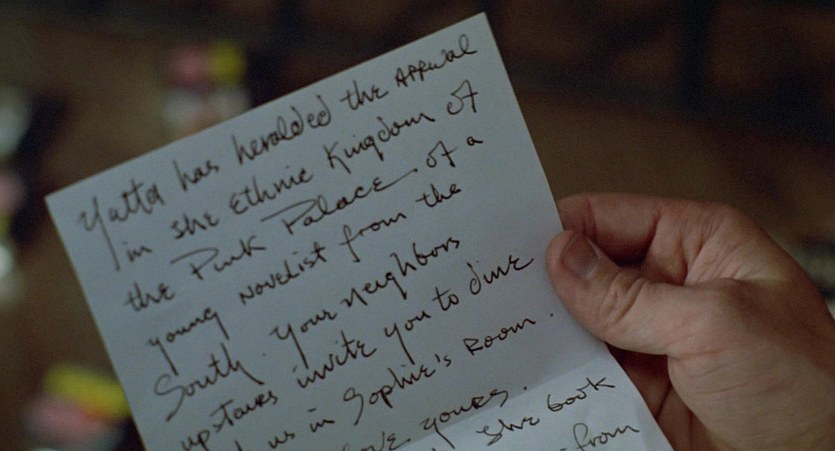 Yetta has heralded the arrival
in the Ethnic Kingdom of
the Pink Palace of a
young novelist from the
South. Your neighbors
upstairs invite you to dine
us in Sophie's room.
yours.
the book
from